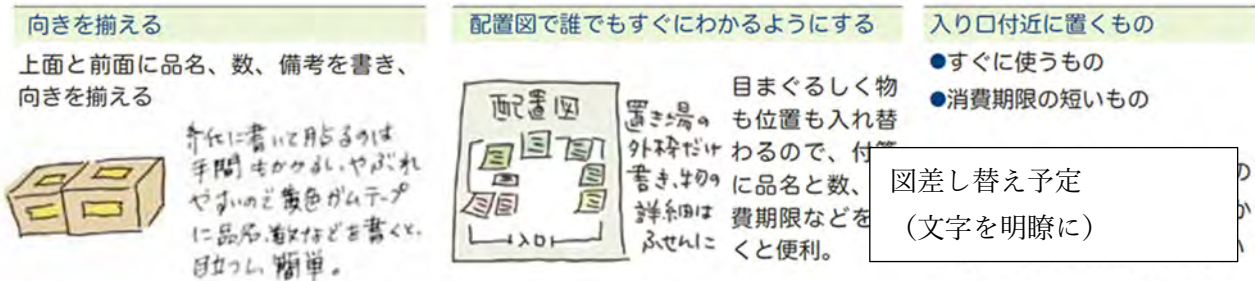 向きを揃える
上面と前面に品名、数、備考を書き、
向きを揃える
紙に書いて貼るのは
手間もかかるし、やぶれ
やすいので黄色ガムテープ
に品名、数などを書くと、
目立つし、簡単。
配置図で誰でもすぐにわかるようにする
配置図
入口
置き場の
外枠だけ
書き、物の
詳細は
ふせんに
目まぐるしく物
も位置も入れ替
わるので、付箋
に品名と数、
費期限などを
くと便利。
入り口付近に置くもの
●すぐに使うもの
●消費期限の短いもの
図差し替え予定
（文字を明瞭に）
の
か
い